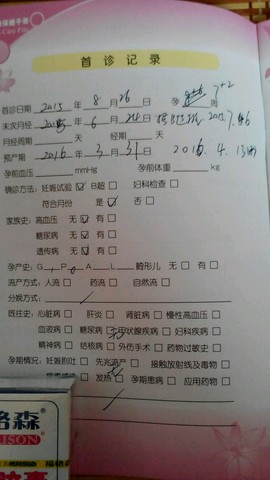 首诊记录
首诊日期 2015 年 8 月 26 日 孕 周 7+2
末次月经 2015 年 6 月 24 日
月经周期 天 经期 天
预产期 2016 年 3 月 31 日 2016.4.13
孕前血压 mmHg 孕前体重 kg
确诊方法：妊娠试验 ☑ B超 □ 妇科检查 □
符合月份 是 ☑ 否 □
家族史：高血压 无 ☑ 有 □
糖尿病 无 ☑ 有 □
遗传病 无 ☑ 有 □
孕产史：G 1 P 0 A L 畸形儿 无 □ 有 □
流产方式：人流 □ 药流 □ 自然流 □
分娩方式：
既往史：心脏病 □ 肝炎 □ 肾脏病 □ 慢性高血压 □
血液病 □ 糖尿病 □ 甲状腺疾病 □ 妇科疾病 □
精神病 □ 结核病 □ 外伤手术 □ 药物过敏史 □
孕期情况：妊娠剧吐 □ 先兆流产 □ 接触放射线及毒物 □
发热 □ 孕期患病 □ 应用药物 □
格森
ISON